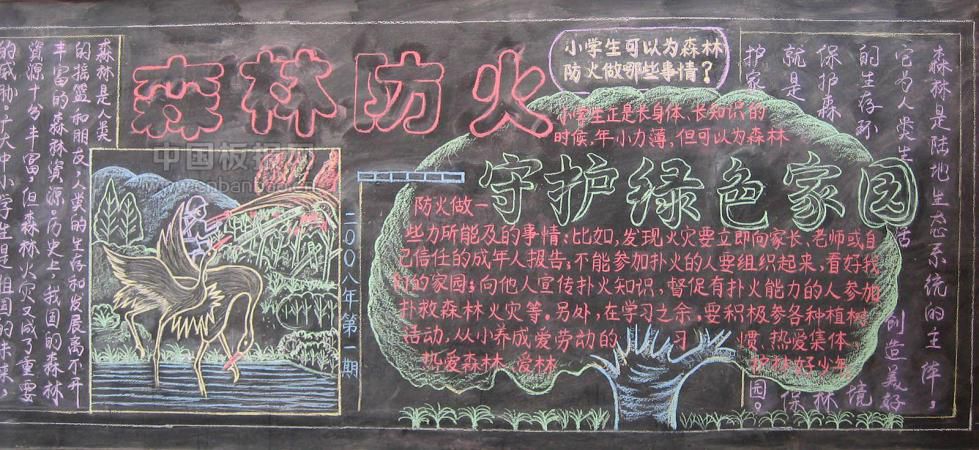 森林防火
小学生可以为森林
防火做哪些事情？
小学生正是长身体、长知识的
时候，年小力薄，但可以为森林
守护绿色家园
防火做一
些力所能及的事情：比如，发现火灾要立即向家长、老师或自
己信任的成年人报告；不能参加扑火的人要组织起来，看好我
们的家园；向他人宣传扑火知识，督促有扑火能力的人参加
扑救森林火灾等。另外，在学习之余，要积极参各种植树
活动，从小养成爱劳动的 习 惯、热爱集体、
热爱森林、爱林 护林好少年
森林是人类
的摇篮和朋友，人类的生存和发展离不开
丰富的森林资源。历史上，我国的森林
资源十分丰富，但森林火灾又成了重要
的威胁，广大中小学生是祖国的未来，
二00八年第一期
森林是陆地生态系统的主体，
它为人类生活创造美好
的生存环境
保护森林
就是保
护家园。
中国板报网
www.cnbanbao.cn